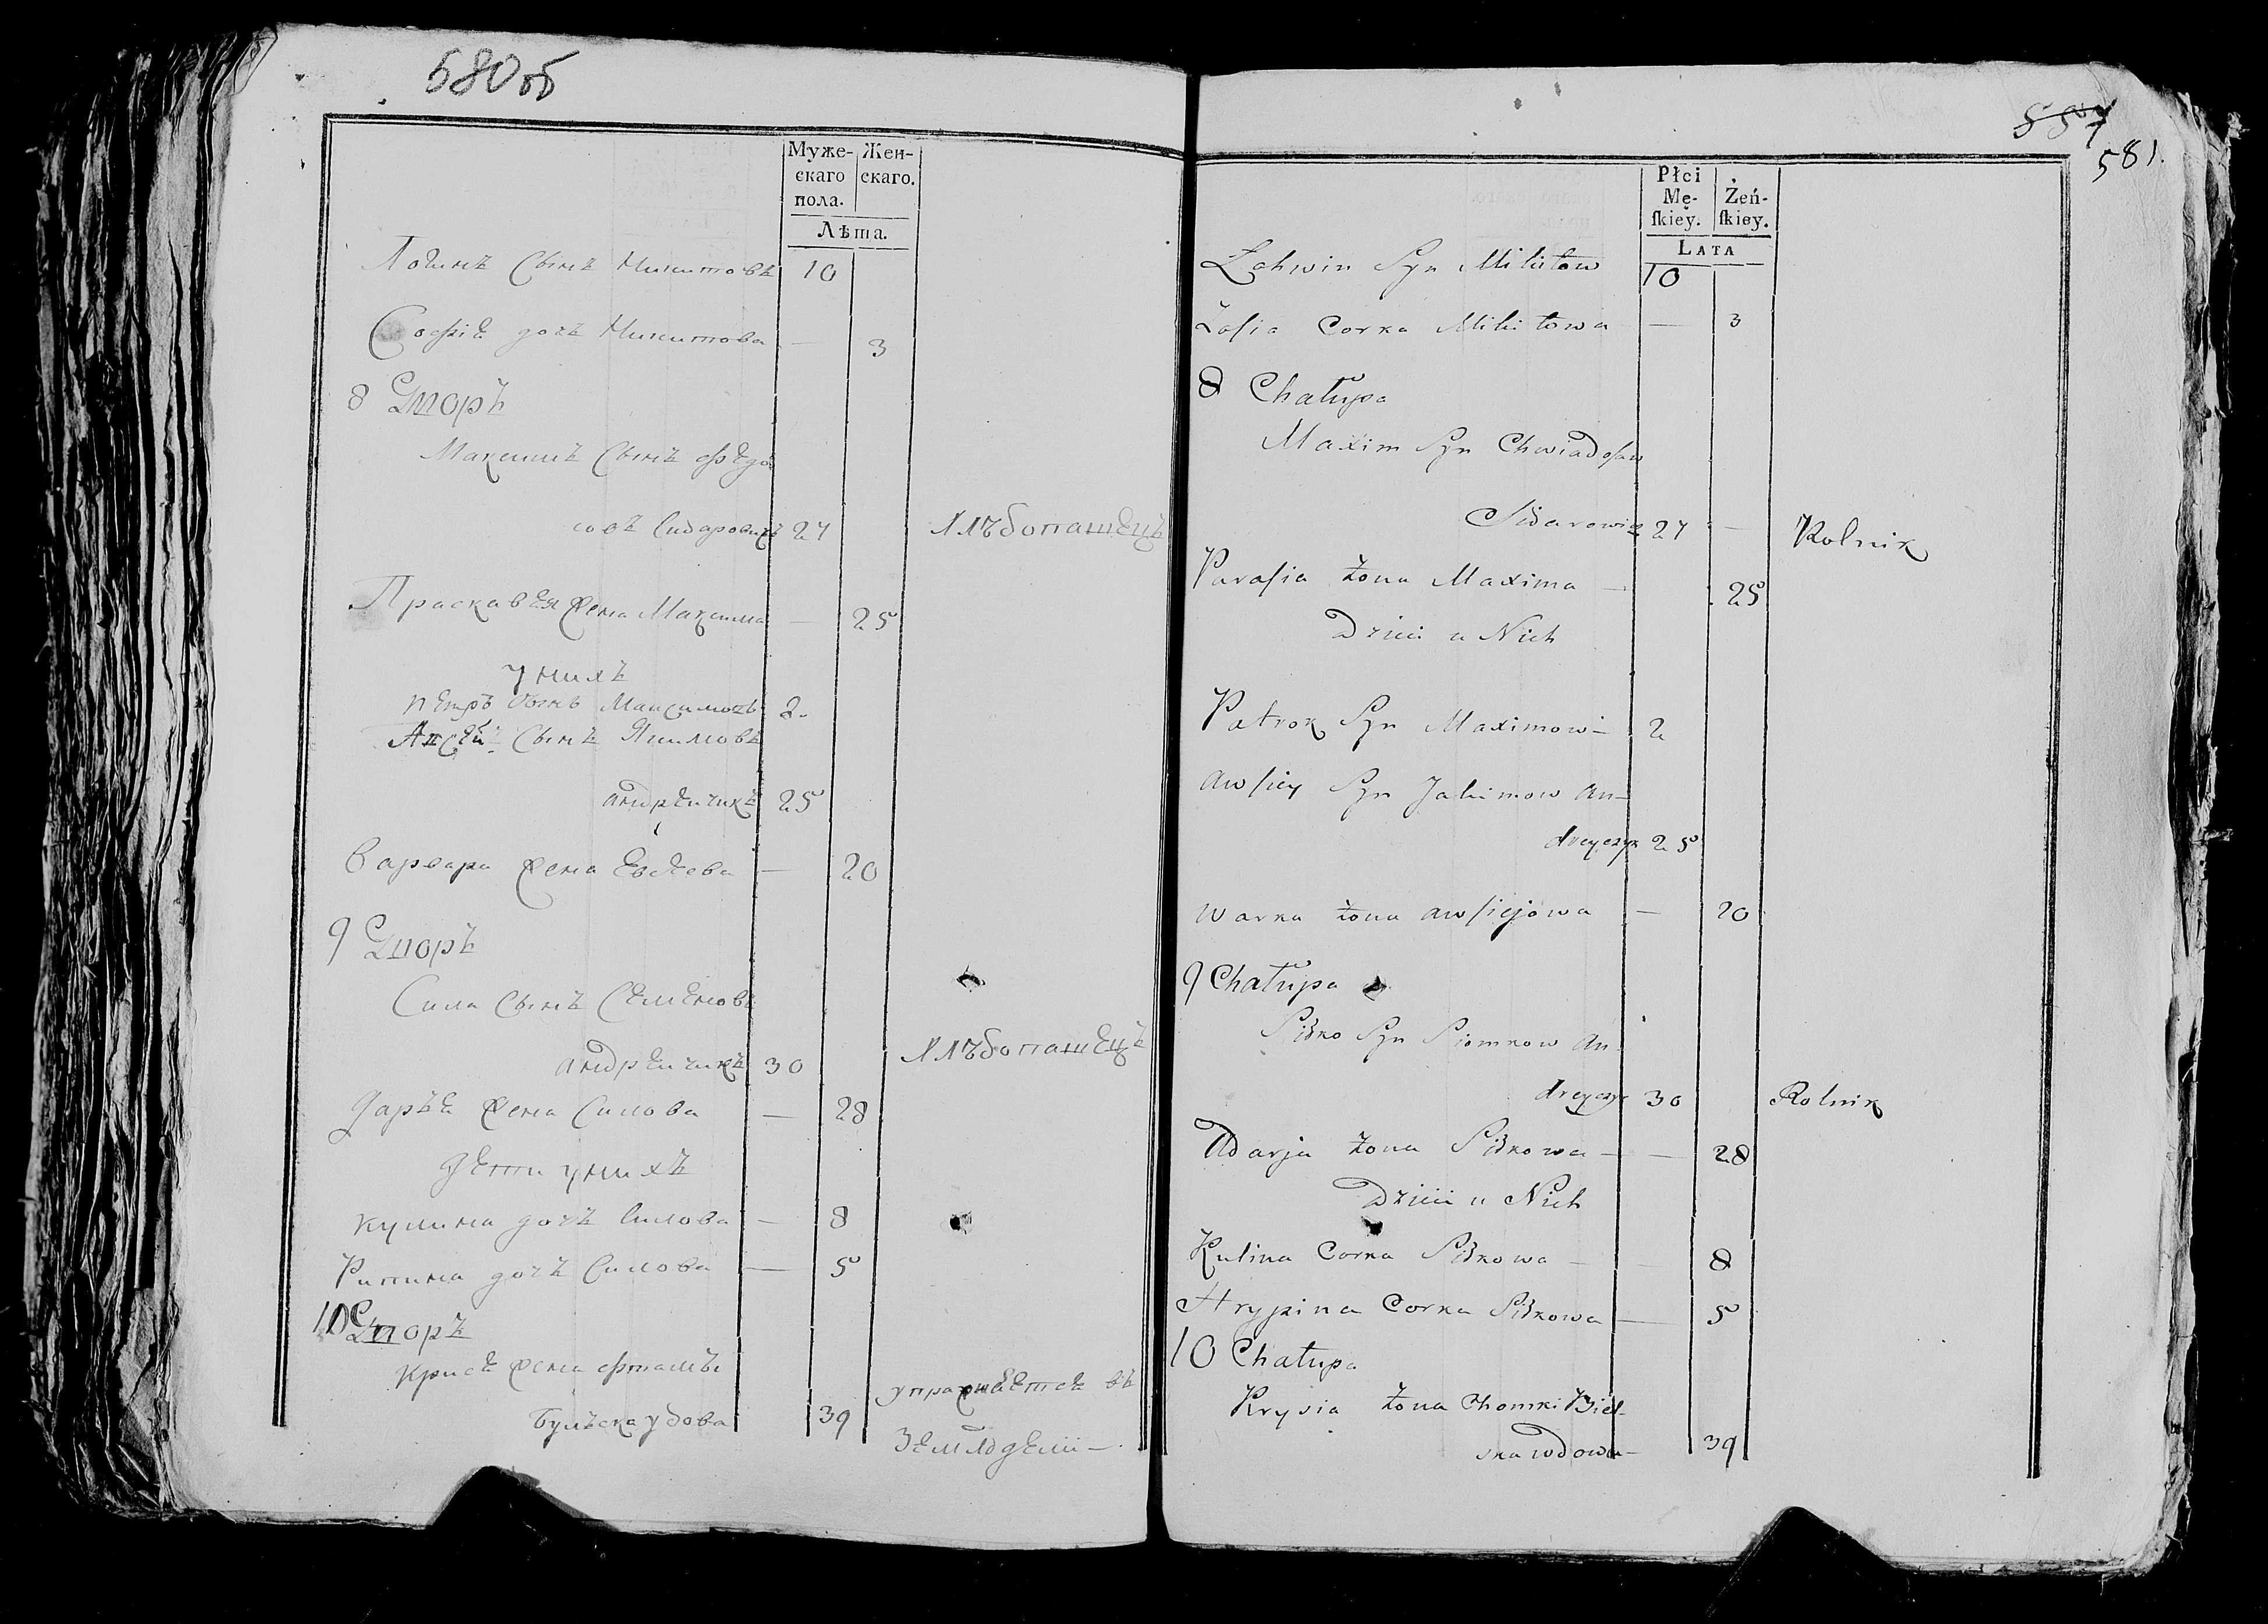 580об
Муже- Жен-
скаго скаго.
пола.
Лѣта.
Логинъ Сынъ Никитовъ 10
Софiя дочь Никитова — 3
8 Дворъ
Максимъ Сынъ Федо
совъ Сидаровичъ 27 Хлѣбопашецъ
Праскавея жена Максима — 25
у нихъ
Петръ Сынъ Максимовъ 2
Сынъ Якимовъ
андрейчикъ 25
Варвара жена — 20
9 Дворъ
Сила Сынъ Семеновъ
андрейчикъ 30 Хлѣбопашецъ
Дарья жена Силова — 28
Дети у нихъ
Кулина дочь Силова — 8
дочь Силова — 5
10 Дворъ
Крися жена
удова 39 упражняется въ
Земледелiи —
557
581.
Płci Żeń-
Mę- ſkiey.
ſkiey.
LATA
Łahwin Syn Mikitow 10
Zofia Corka Mikitowa — 3
8 Chałupa
Maxim Syn Chwiadosaw
Sidarowicz 27 — Rolnik
Parasia żona Maxima — 25
Dzieci u Nich
Patrok Syn Maximow — 2
Awsiey Syn Jakimow An-
dreyczyk 25
Warka żona Awsiejowa — 20
9 Chałupa
Siłko Syn Siomkow An
dreyczyk 30 Rolnik
Adarja żona Siłkowa — — 28
Dzieci u Nich
Kulina Corka Siłkowa — — 8
Hrypina Corka Siłkowa — 5
10 Chałupa
Krysia żona Chomki Biel-
ska wdowa — 39